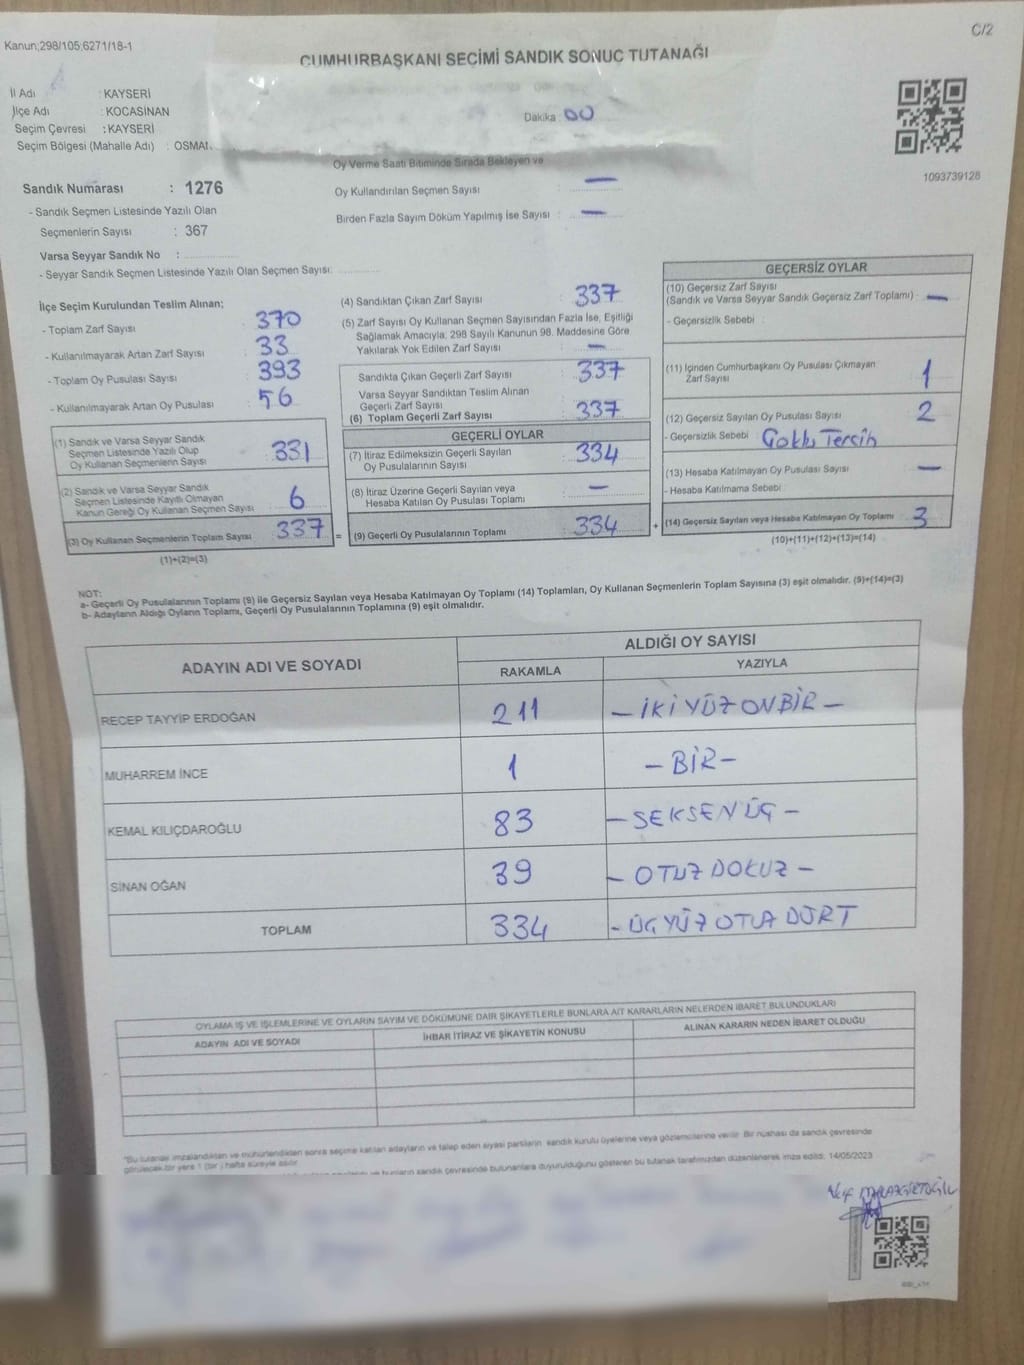 Kanun;298/105;6271/18-1
C/2
CUMHURBAŞKANI SEÇİMİ SANDIK SONUÇ TUTANAĞI
İl Adı : KAYSERİ
İlçe Adı : KOCASİNAN
Seçim Çevresi : KAYSERİ
Seçim Bölgesi (Mahalle Adı) :
Dakika : 00
1093739128
Sandık Numarası : 1276
- Sandık Seçmen Listesinde Yazılı Olan
Seçmenlerin Sayısı : 367
Varsa Seyyar Sandık No :
- Seyyar Sandık Seçmen Listesinde Yazılı Olan Seçmen Sayısı:
Oy Verme Saati Bitiminde Sırada Bekleyen ve
Oy Kullandırılan Seçmen Sayısı : —
Birden Fazla Sayım Döküm Yapılmış İse Sayısı : —
İlçe Seçim Kurulundan Teslim Alınan;
- Toplam Zarf Sayısı : 370
- Kullanılmayarak Artan Zarf Sayısı : 33
- Toplam Oy Pusulası Sayısı : 393
- Kullanılmayarak Artan Oy Pusulası : 56
(1) Sandık ve Varsa Seyyar Sandık
Seçmen Listesinde Yazılı Olup
Oy Kullanan Seçmenlerin Sayısı : 331
(2) Sandık ve Varsa Seyyar Sandık
Seçmen Listesinde Kayıtlı Olmayan
Kanun Gereği Oy Kullanan Seçmen Sayısı : 6
(3) Oy Kullanan Seçmenlerin Toplam Sayısı : 337 =
(1)+(2)=(3)
(4) Sandıktan Çıkan Zarf Sayısı : 337
(5) Zarf Sayısı Oy Kullanan Seçmen Sayısından Fazla İse, Eşitliği
Sağlamak Amacıyla; 298 Sayılı Kanunun 98. Maddesine Göre
Yakılarak Yok Edilen Zarf Sayısı : —
Sandıkta Çıkan Geçerli Zarf Sayısı : 337
Varsa Seyyar Sandıktan Teslim Alınan
Geçerli Zarf Sayısı :
(6) Toplam Geçerli Zarf Sayısı : 337
GEÇERLİ OYLAR
(7) İtiraz Edilmeksizin Geçerli Sayılan
Oy Pusulalarının Sayısı : 334
(8) İtiraz Üzerine Geçerli Sayılan veya
Hesaba Katılan Oy Pusulası Toplamı : —
(9) Geçerli Oy Pusulalarının Toplamı : 334 +
GEÇERSİZ OYLAR
(10) Geçersiz Zarf Sayısı
(Sandık ve Varsa Seyyar Sandık Geçersiz Zarf Toplamı) : —
- Geçersizlik Sebebi :
(11) İçinden Cumhurbaşkanı Oy Pusulası Çıkmayan
Zarf Sayısı : 1
(12) Geçersiz Sayılan Oy Pusulası Sayısı : 2
- Geçersizlik Sebebi : Çoklu Tercih
(13) Hesaba Katılmayan Oy Pusulası Sayısı : —
- Hesaba Katılmama Sebebi :
(14) Geçersiz Sayılan veya Hesaba Katılmayan Oy Toplamı : 3
(10)+(11)+(12)+(13)=(14)
NOT:
a- Geçerli Oy Pusulalarının Toplamı (9) ile Geçersiz Sayılan veya Hesaba Katılmayan Oy Toplamı (14) Toplamları, Oy Kullanan Seçmenlerin Toplam Sayısına (3) eşit olmalıdır. (9)+(14)=(3)
b- Adayların Aldığı Oyların Toplamı, Geçerli Oy Pusulalarının Toplamına (9) eşit olmalıdır.
ADAYIN ADI VE SOYADI
ALDIĞI OY SAYISI
RAKAMLA YAZIYLA
RECEP TAYYİP ERDOĞAN 211 - İKİYÜZONBİR -
MUHARREM İNCE 1 - BİR -
KEMAL KILIÇDAROĞLU 83 - SEKSENÜÇ -
SİNAN OĞAN 39 - OTUZDOKUZ -
TOPLAM 334 - ÜÇYÜZOTUZDÖRT
OYLAMA İŞ VE İŞLEMLERİNE VE OYLARIN SAYIM VE DÖKÜMÜNE DAİR ŞİKAYETLERLE BUNLARA AİT KARARLARIN NELERDEN İBARET BULUNDUKLARI
ADAYIN ADI VE SOYADI
İHBAR İTİRAZ VE ŞİKAYETİN KONUSU
ALINAN KARARIN NEDEN İBARET OLDUĞU
"Bu tutanak imzalandıktan ve mühürlendikten sonra seçime katılan adayların ve talep eden siyasi partilerin sandık kurulu üyelerine veya gözlemcilerine verilir. Bir nüshası da sandık çevresinde
görülecek bir yere 1 (bir) hafta süreyle asılır.
sandık çevresinde bulunanlara duyurulduğunu gösteren bu tutanak tarafımızdan düzenlenerek imza edildi. 14/05/2023